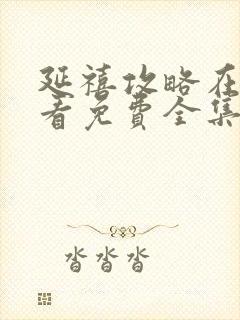 延禧攻略在
看免费全集
沓沓沓